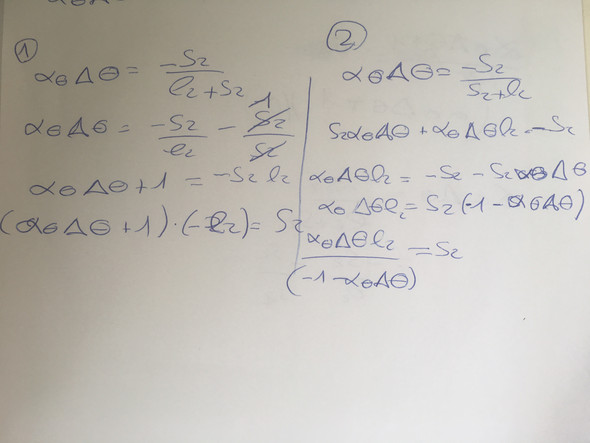 ①
α_θ Δθ = -S₂ / (l₂ + S₂)
α_θ Δθ = -S₂ / l₂ - S₂ / S₂ 1
α_θ Δθ + 1 = -S₂ l₂
(α_θ Δθ + 1) · (-l₂) = S₂
②
α_θ Δθ = -S₂ / (S₂ + l₂)
S₂ α_θ Δθ + α_θ Δθ l₂ = -S₂
α_θ Δθ l₂ = -S₂ - S₂ α_θ Δθ
α_θ Δθ l₂ = S₂ (-1 - α_θ Δθ)
α_θ Δθ l₂ / (-1 - α_θ Δθ) = S₂